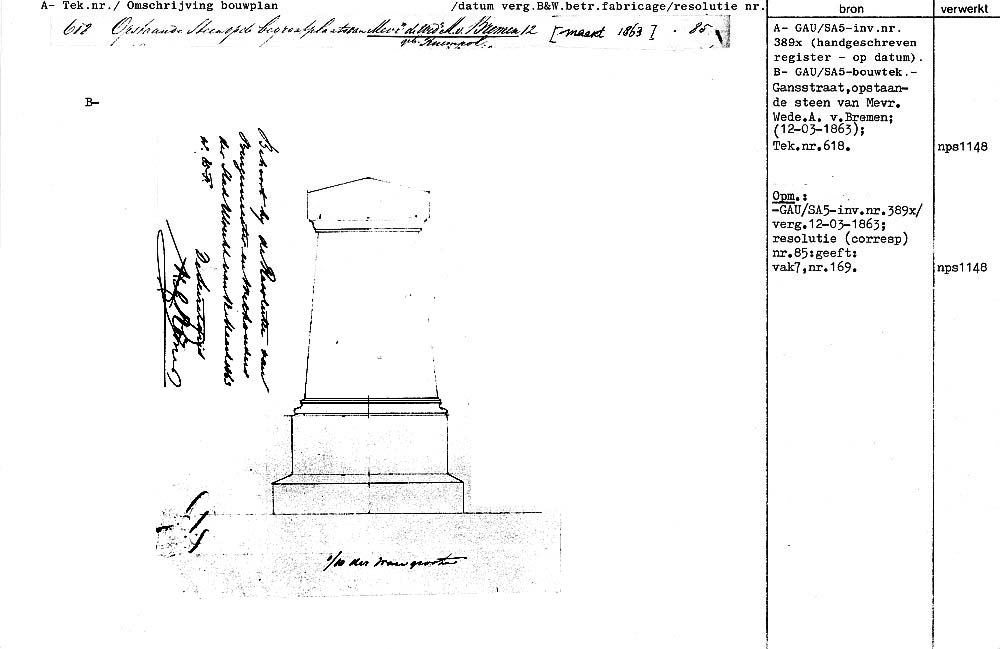 A- Tek.nr./ Omschrijving bouwplan /datum verg.B&W.betr.fabricage/resolutie nr.
bron
verwerkt
618 Opstaande Steen op de begraafplaats van Mevr de Wed A. v. Bremen 12 [maart 1863] . 85
B-
Behoort bij de Resolutie van
Burgemeester en Wethouders
der Stad Utrecht van 12 Maart 1863
n. 85.
De Secretaris
618
1/10 der ware grootte
A- GAU/SA5-inv.nr.
389x (handgeschreven
register - op datum).
B- GAU/SA5-bouwtek.-
Gansstraat,opstaan-
de steen van Mevr.
Wede.A. v.Bremen;
(12-03-1863);
Tek.nr.618.
nps1148
Opm.:
-GAU/SA5-inv.nr.389x/
verg.12-03-1863;
resolutie (corresp)
nr.85:geeft:
vak7,nr.169.
nps1148